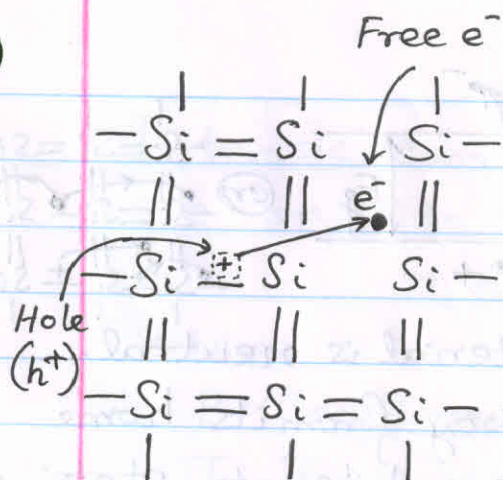 Free e⁻
Si Si Si
e⁻
+
Si Si Si
Hole
(h⁺)
Si Si Si